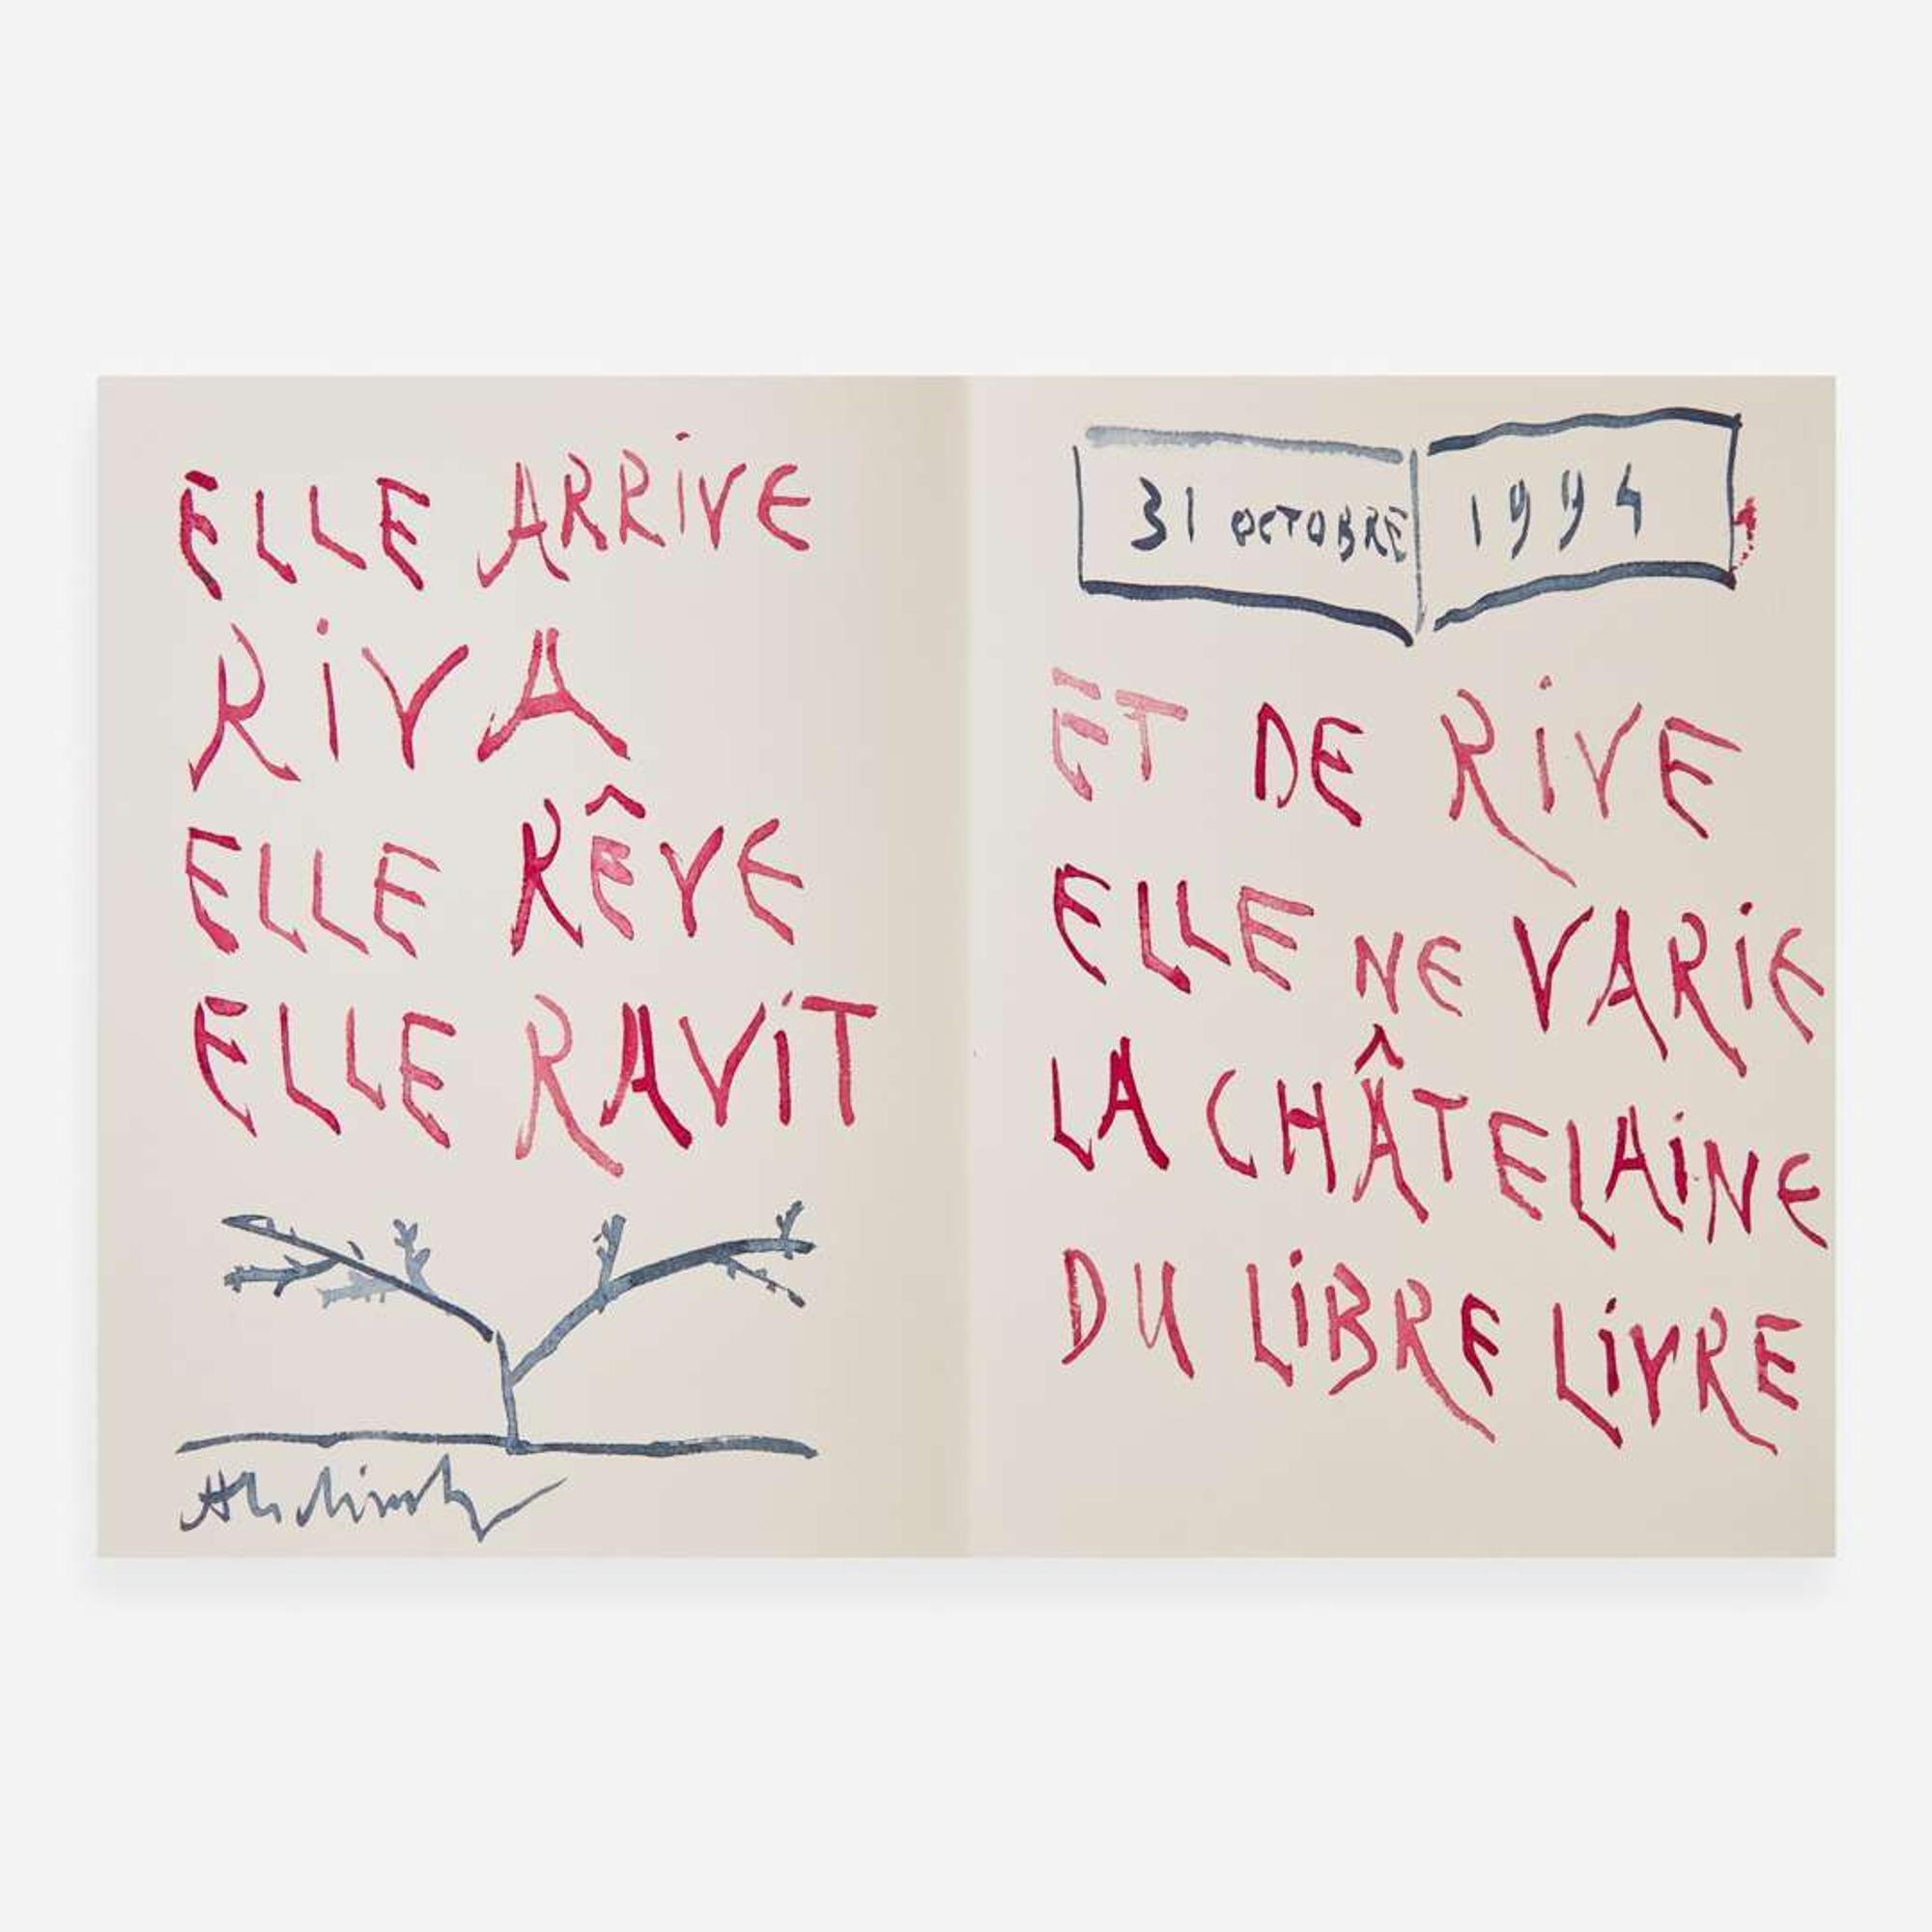 ELLE ARRIVE
RIVA
ELLE RÊVE
ELLE RAVIT
31 OCTOBRE 1994
ET DE RIVE
ELLE NE VARIE
LA CHÂTELAINE
DU LIBRE LIVRE